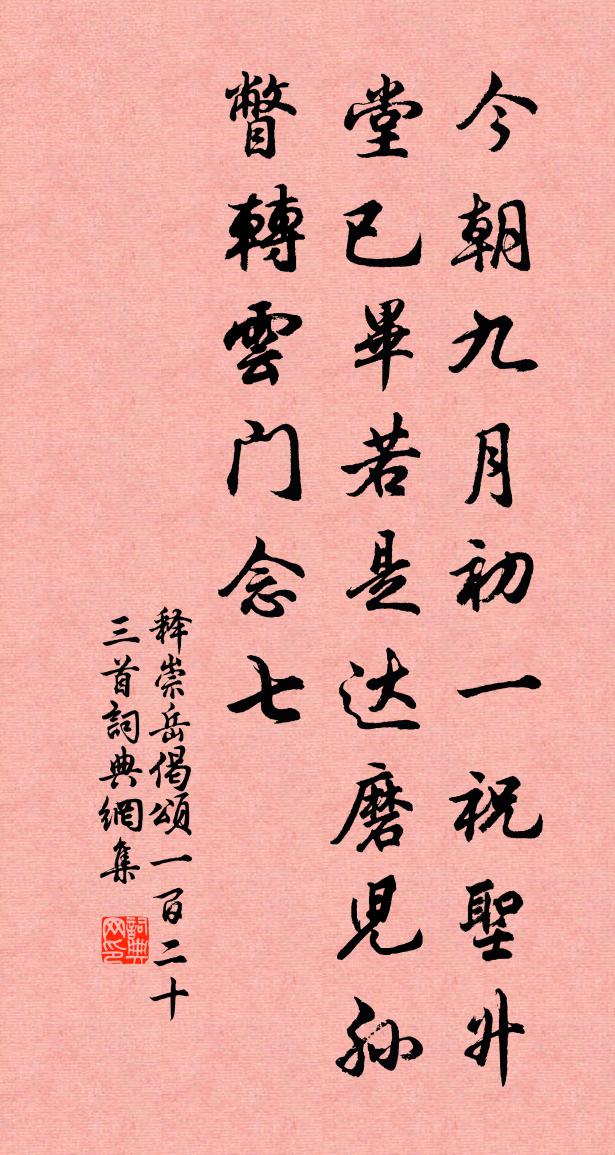 今朝九月初一祝聖升
堂已畢若是达磨児孫
瞥轉雲门念七
释崇岳偈頌一百二十
三首詞典網集
詞典网印